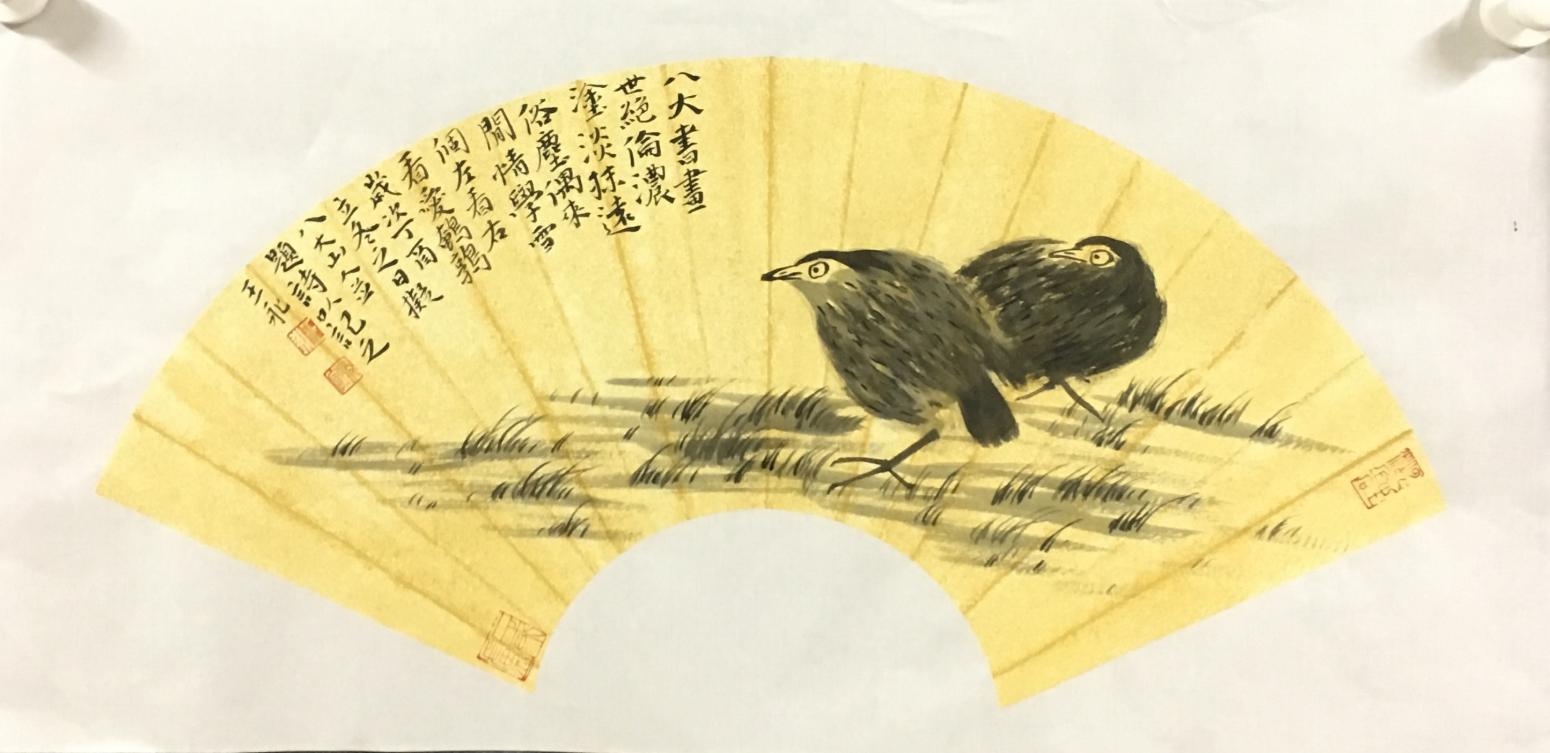 八大書畫
世絕倫濃
塗淡抹遠
俗塵偶來
閒情學雪
個左看右
看愛鵪鶉
歲次丁酉
立冬之日擬
八大山人並
題詩以記之
王礼